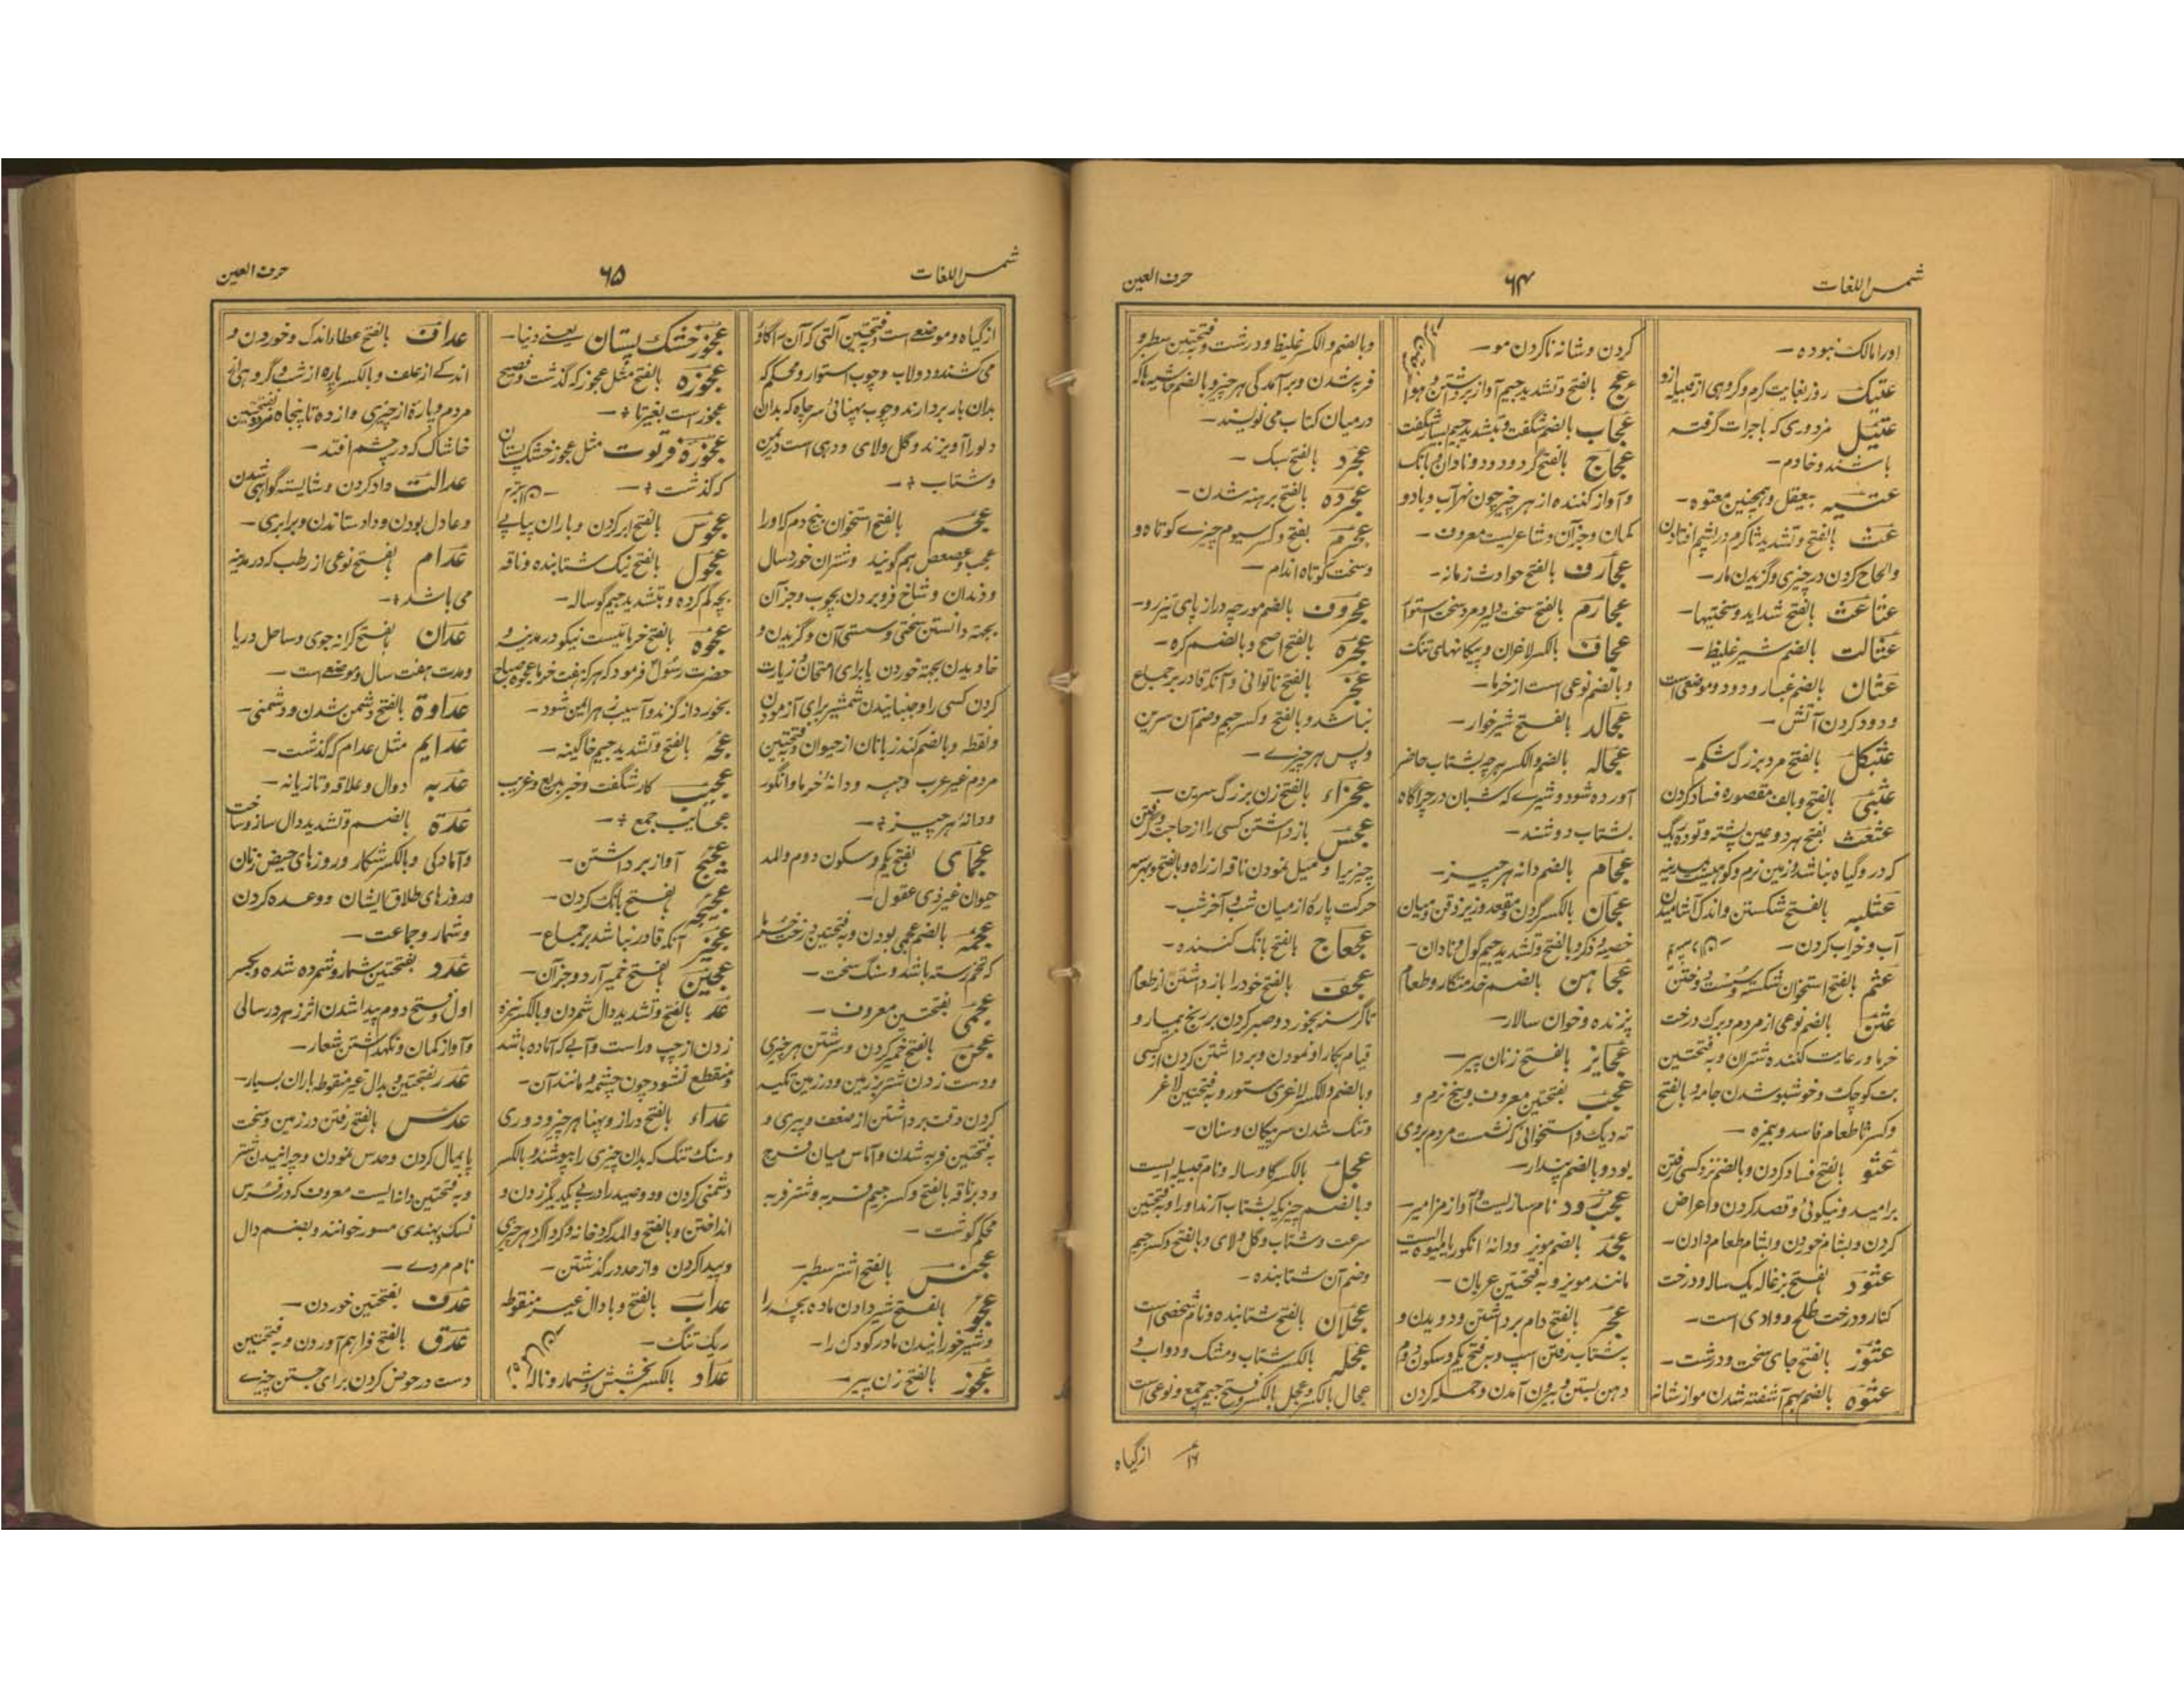 شمس اللغات
۶۴
حرف العین
اورا مالک نبوده -
عتیک روز بغایت گرم و گروهی از قبیله ازو
عتیل مزدوری که باجرات گرفته
باشند و خادم -
عتیه بیعقل و همچنین معتوه -
عث بالفتح و تشدید ثا کرم در پشم افتادن
و الحاح کردن در چیزی و گزیدن مار -
عثاعث بالفتح شداید و سختیها -
عثالت بالضم شیر غلیظ -
عثان بالضم غبار و دود و موضعی است
و دود کردن آتش -
عثبکل بالفتح مرد بزرگ شکم -
عثبی بالفتح و بالف مقصوره فساد کردن
عثعث بفتح هر دو عین پشته و توده ریگ
که در و گیاه نباشد و زمین نرم و کوهیست بمدینه
عثلبه بالفتح شکستن و اندک آشامیدن
آب و خراب کردن -
عثم بالفتح استخوان شکسته و سست دوختن
عثن بالضم نوعی از مردم و برگ درخت
خرما و رعایت کننده شتران و به فتحتین
بت کوچک و خوشبو شدن جامه و بالفتح
و کسر ثا طعام فاسد و بیمزه -
عثو بالفتح فساد کردن و بالضم نزد کسی رفتن
برامید و نیکوئی و قصد کردن و اعراض
کردن و بشام خوردن و بشام طعام دادن -
عثود بفتح بزغاله یک ساله و درخت
کنار و درخت طلح و وادی است -
عثوز بالفتح جای سخت و درشت -
عثوه بالضم بهم آشفته شدن مو از شانه
کردن و شانه ناکردن مو -
عج بالفتح و تشدید جیم آواز برداشتن و هوا
عجاب بالضم شگفت و بتشدید جیم بسیار شگفت
عجاج بالفتح گرد و دود و نادان و بانگ
و آواز کننده از هر چیز چون نهر آب و باد و
کمان و جز آن و شاعریست معروف -
عجارف بالفتح حوادث زمانه -
عجارم بالفتح سخت دلیر و مرد سخت استوار
عجاف بالکسر لاغران و پیکانهای تنگ
و بالضم نوعی است از خرما -
عجالد بالفتح شیر خوار -
عجاله بالضم و الکسر هر چه بشتاب حاضر
آورده شود و شیری که شبان در چراگاه
بشتاب دوشند -
عجام بالضم دانه هر چیز -
عجان بالکسر گردن و مقعد و زیر ذقن و میان
خصیه و ذکر و بالفتح و تشدید جیم گول و نادان -
عجاهن بالضم خدمتگار و طعام
پزنده و خوان سالار -
عجایز بالفتح زنان پیر -
عجب بفتحتین معروف و بیخ نرم و
ته دیک و استخوانی که نشست مردم بروی
بود و بالضم پندار -
عجب رود نام سازیست و آواز مزامیر -
عجد بالضم مویز و دانهٔ انگور یا میوه ایست
مانند مویز و به فتحتین عریان -
عجر بالفتح دام برداشتن و دویدن و
به شتاب رفتن اسپ و به فتح یکم و سکون دوم
دهن بستن و بیرون آمدن و حمله کردن
و بالضم و الکسر غلیظ و درشت و به فتحتین سطبر و
فربه شدن و برآمدگی هر چیز و بالضم حاشیه باکه
درمیان کتاب می نویسند -
عجرد بالفتح سبک -
عجرده بالفتح برهنه شدن -
عجرم بفتح و کسر سیوم چیزے کوتاه و
و سخت کوتاه اندام -
عجروف بالضم مورچه دراز پای تیز رو -
عجره بالفتح اصح و بالضم گره -
عجز بالفتح ناتوانی و آنکه قادر بر جماع
نباشد و بالفتح و کسر جیم و ضم آن سرین
و پس هر چیزے -
عجزاء بالفتح زن بزرگ سرین -
عجس بازداشتن کسی را از حاجت و گرفتن
چیزیرا و میل نمودن ناقه از راه و بالفتح و بهر سه
حرکت پارهٔ از میان شب و آخر شب -
عجعاج بالفتح بانگ کننده -
عجف بالفتح خود را بازداشتن از طعام
تا گرسنه بخورد و صبر کردن بر رنج بیمار و
قیام بکار او نمودن و برداشتن کردن از کسی
و بالضم و الکسر لاغری ستور و به فتحتین لاغر
و تنگ شدن سر پیکان و سنان -
عجل بالکسر گاو ساله و نام قبیله ایست
و بالضم چیزیکه بشتاب آرند او را و به فتحتین
سرعت و شتاب و گل و لای و بالفتح و کسر جیم
و ضم آن شتابنده -
عجلان بالفتح شتابنده و نام شخصی است
عجله بالکسر شتاب و مشک و دولاب
عجال بالکسر و عجل بالکسر و فتح جیم جمع و نوعی است
از گیاه
شمس اللغات
۶۵
حرف العین
از گیاه و موضعی است و به فتحتین آلتی که آن را گاو
می کشند و دولاب و چوب استوار و محکم که
بدان بار بردارند و چوب پهنائی سر چاه که بدان
دلو را آویزند و گل و لای و دهی است در یمن
و شتاب -
عجم بالفتح استخوان بیخ دم که او را
عجب و عصعص هم گویند و شتران خورد سال
و دندان و شاخ فرو بردن بچوب و جز آن
بجهة دانستن سختی و سستی آن و گزیدن و
خاویدن بجهة خوردن یا برای امتحان و زیارت
کردن کسی را و جنبانیدن شمشیر برای آزمودن
و نقطه و بالضم کند زبانان از حیوان و فتحتین
مردم غیر عرب و جبه و دانهٔ خرما و انگور
و دانهٔ هر چیز -
عجمای بفتح یکم و سکون دوم و المد
حیوان غیر ذی عقول -
عجمه بالضم عجمی بودن و به فتحتین درخت خرما
که از تخم رسته باشد و سنگ سخت -
عجمی بفتحتین معروف -
عجن بالفتح خمیر کردن و سرشتن هر چیزی
و دست زدن شتر بر زمین و در زمین تکیه
کردن وقت برداشتن از ضعف و پیری و
به فتحتین فربه شدن و آماس میان فرج
و دبر ناقه بالفتح و کسر جیم فربه و شتر فربه
محکم گوشت -
عجنس بالفتح اشتر سطبر -
عجو بالفتح شیر دادن ماده بچه را
و شیر خورانیدن مادر کودک را -
عجوز بالفتح زن پیر -
عجوز خشک پستان یعنے دنیا -
عجوزه بالفتح مثل عجوز که گذشت و فصیح
عجوز است بغیر تا -
عجوزهٔ فرتوت مثل عجوز خشک پستان
که گذشت -
عجوس بالفتح ابر کردن و باران پیاپے
عجول بالفتح نیک شتابنده و ناقه
بچه گم کرده و بتشدید جیم گوساله -
عجوه بالفتح خرمائیست نیکو در مدینه و
حضرت رسول فرمود که هر که هفت خرما عجوه صباح
بخورد از گزند و آسیب زهر ایمن شود -
عجه بالفتح و تشدید جیم خاگینه -
عجیب کار شگفت و خبر بدیع و غریب
عجایب جمع -
عجیج آواز برداشتن -
عجیجه بفتح بانگ کردن -
عجیز آنکه قادر نباشد بر جماع -
عجین بفتح خمیر آرد و جز آن -
عد بالفتح و تشدید دال شمردن و بالکسر نیزه
زدن از چپ و راست و آبے که آماده باشد
و منقطع نشود چون چشمه و مانند آن -
عداء بالفتح دراز و پهنا هر چیز و دوری
و سنگ تنک که بدان چیزی را بپوشند و بالکسر
دشمنی کردن و دو صید را در پے یکدیگر زدن و
انداختن و بالفتح و المد گرد خانه و گرداگرد هر چیزی
و پیدا کردن و از حد در گذشتن -
عداب بالفتح و با دال غیر منقوطه
ریگ تنگ -
عداد بالکسر بخشش و شمار و ناله
عداف بالفتح عطا و اندک و خوردن و
اندکے از علف و بالکسر پاره از شب و گروهی از
مردم و پارهٔ از چیزی و از ده تا پنجاه مرد و فتحتین
خاشاک که در چشم افتد -
عدالت داد کردن و شایسته گواهی شدن
و عادل بودن و داد ستاندن و برابری -
عدام بفتح نوعی از رطب که در مدینه
می باشد -
عدان بفتح کرانه جوی و ساحل دریا
و مدت هفت سال و موضعی است -
عداوة بالفتح دشمن شدن و دشمنی -
عدایم مثل عدام که گذشت -
عدبه دوال و علاقه و تازیانه -
عدة بالضم و تشدید دال ساز و ساخت
و آمادگی و بالکسر شکار و روزهای حیض زنان
و روزهای طلاق ایشان و وعده کردن
و شمار و جماعت -
عدد بفتحتین شمار و شمرده شده و بکسر
اول و فتح دوم پیدا شدن اثر زهر در سالی
و آواز کمان و نگهداشتن شعار -
عدر بفتحتین و بدال غیر منقوطه باران بسیار -
عدس بالفتح رفتن در زمین و سخت
پایمال کردن و حدس نمودن و چرانیدن شتر
و به فتحتین دانه ایست معروف که در فرس
نسک و بهندی مسور خوانند و بضم دال
نام مردے -
عدف بفتحتین خوردن -
عدق بالفتح فراهم آوردن و به فتحتین
دست در حوض کردن برای جستن چیزے